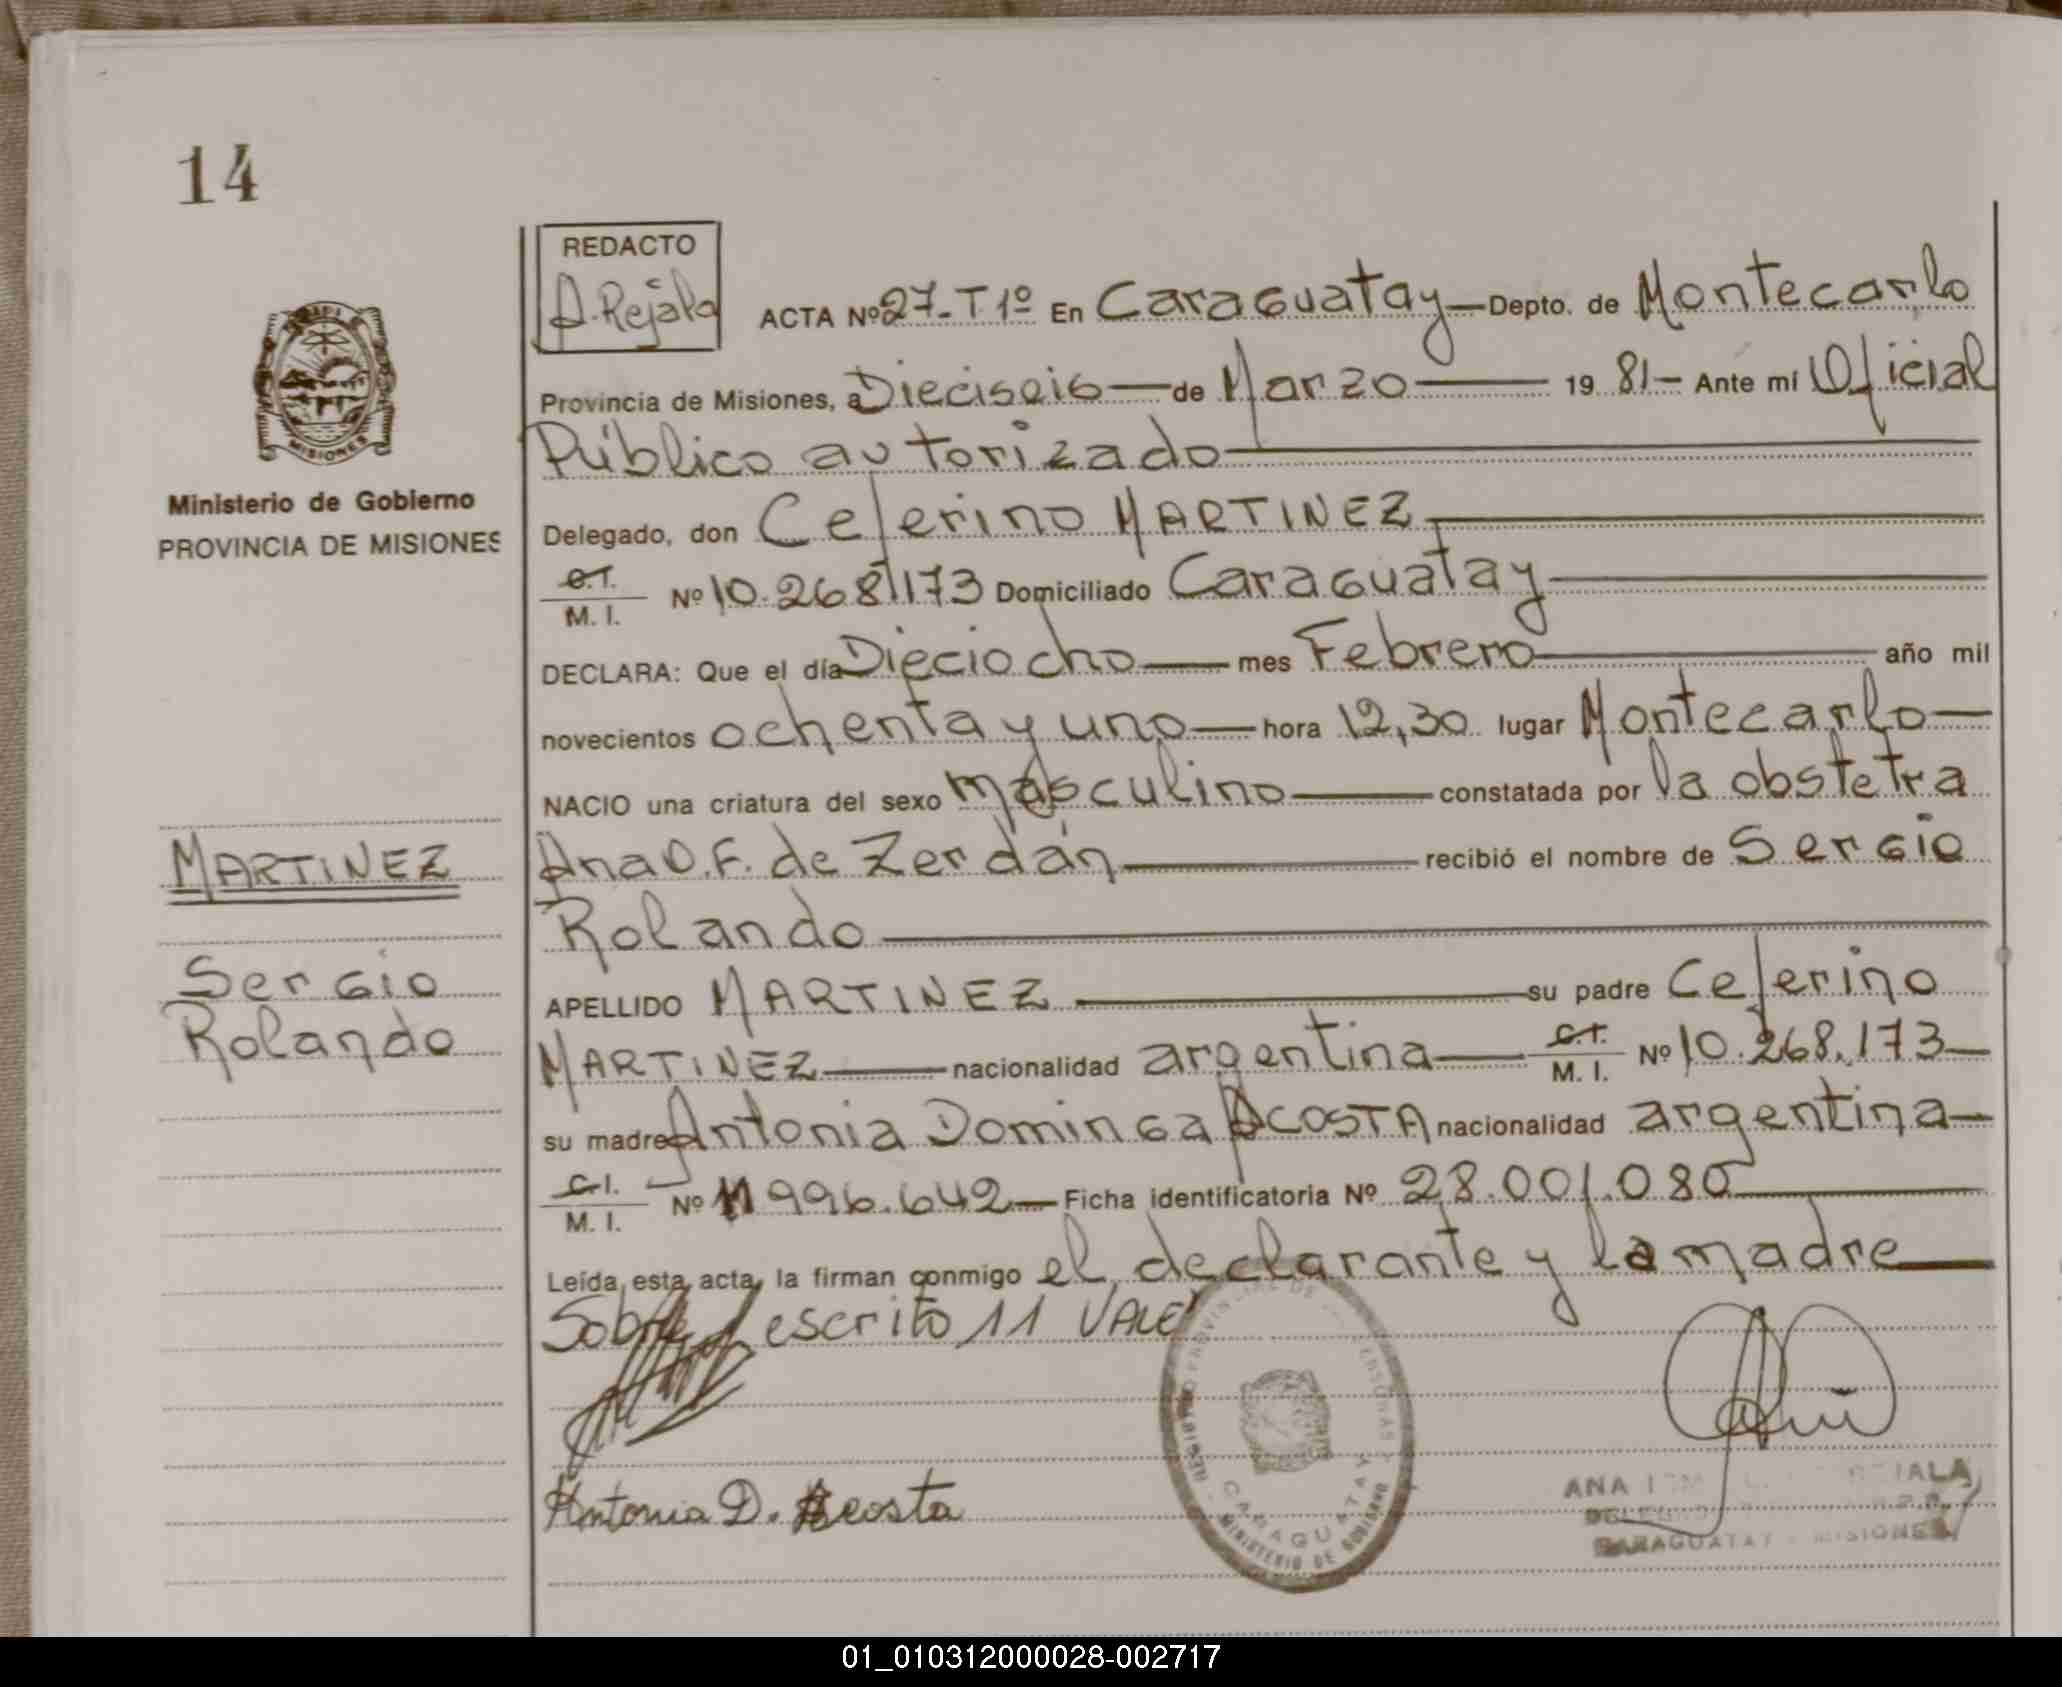 14
REDACTO
A. Rejala
ACTA Nº 27-T1º En Caraguatay Depto. de Montecarlo
Provincia de Misiones, a Dieciseis de Marzo 19 81 Ante mí Oficial
Público autorizado
MISIONES
Ministerio de Gobierno
PROVINCIA DE MISIONES
Delegado, don Ceferino MARTINEZ
C.I. M. I. Nº 10.268.173 Domiciliado Caraguatay
DECLARA: Que el día Dieciocho mes Febrero año mil
novecientos ochenta y uno hora 12,30 lugar Montecarlo
NACIO una criatura del sexo masculino constatada por la obstetra
Ana O.F. de Zerdán recibió el nombre de Sergio
Rolando
MARTINEZ
Sergio
Rolando
APELLIDO MARTINEZ su padre Ceferino
MARTINEZ nacionalidad argentina C.I. M. I. Nº 10.268.173
su madre Antonia Dominga ACOSTA nacionalidad argentina
C.I. M. I. Nº 11 996.642 Ficha identificatoria Nº 28.001.080
Leída esta acta, la firman conmigo el declarante y la madre
Sobre escrito 11 VALE
Antonia D. Acosta
CARAGUATAY
MINISTERIO DE GOBIERNO
ANA
CARAGUATAY - MISIONES
01_010312000028-002717